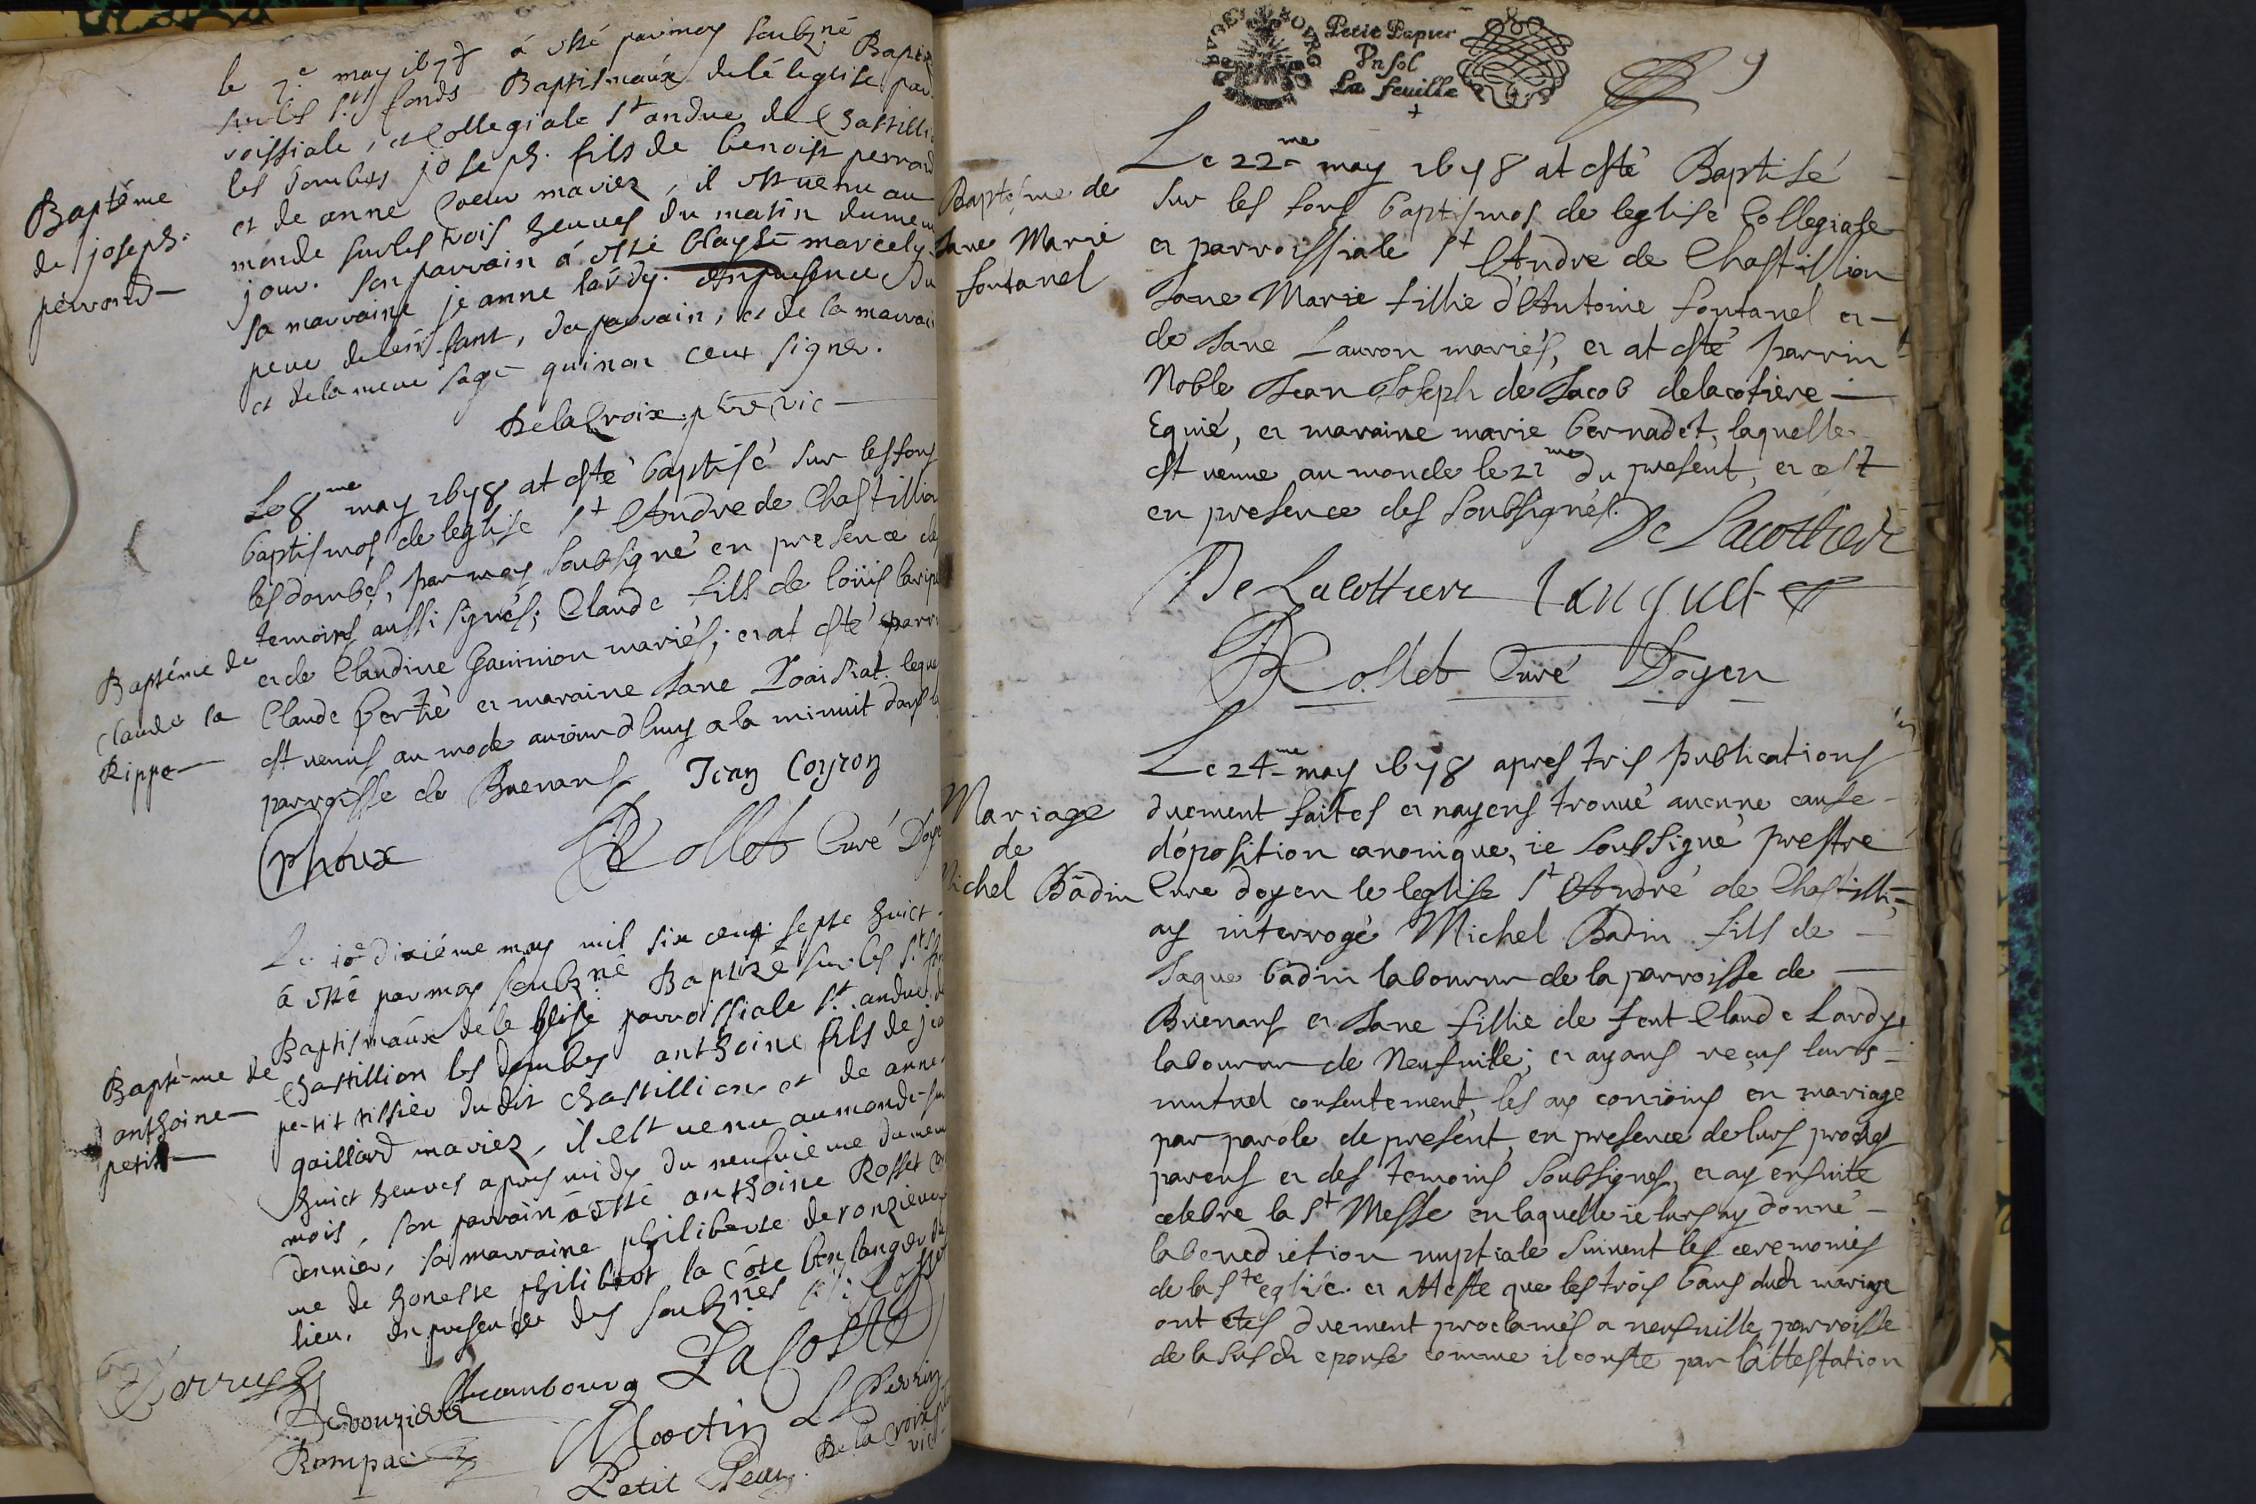 le 7e may 1678 á esté par moy soubzné Baptizé
sur les Sts fonds Baptismaúx de lé leglise par
roissiale, et Collegiale St andre de Chastilli
les dombes joseph. fils de benoist perrond
et de anne Coeur mariez, il est venu au
monde sur les trois heures du matin du meme
jour. Son parrain á esté blayse marcely
sa marraine jeanne lardy. En presence du
pere de lenfant, du parrain, et de la marrai
et de la mere sage qui non sceu signer.
Baptême
de joseph.
perrond
De la Croix ptre vic
Le 8me may 1678 at esté baptisé sur les fons
baptismos de leglise St Andre de Chastillion
les dombes, par moy soubsigné en presence des
temoins aussi signés; Claude fills de loüis laripe
et de Claudine Gauinion mariés; et at esté parri
Claude bertié et maraine Jane Loaisiat lequel
est venus au mode auiourdhuy a la minuit dans la
parroisse de Buenans
Baptéme de
claude la
Rippe
Jean Coyron
Phoux
Rollet Curé Doye
Le 10e dixiéme may mil six cent septe huict
á esté par moy soubzné Baptizé sur les Sts fon
Baptismaúx de le glise parroissiale St. andre de
Chastillion les dombes anthoine fils de jea
petit tissier du dit Chastillion et de anne
gaillard mariez, il est venu au monde sur
huict heures apres midy du neufvieme du mem
mois, son parrain á esté anthoine Rosset
dernier, sa marraine philiberte de ronziere
me de honeste philibert la Coste boulanger du
lieu. En presence des soubznés
Baptéme de
anthoine
petit
Lacoste
Chambourg
Deronziere
Martin
Perrin
De la Croix
vic
Petit Jean
Petit Papier
Vn sol
La feuille
9
Le 22me may 1678 at esté Baptisé
sur les fons baptismos de leglise Collegiale
et parroissiale St Andre de Chastillion
Jane Marie fillie d'Antoine fontanel et
de Jane Lauron mariés, et at esté parrin
Noble Jean Joseph de Jacob delacotiere
Equié, et maraine marie bernadet, laquelle
est venue au monde le 21me du present, et cest
en presence des soubsignés.
Baptesme de
Jane Marie
fontanel
De Lacottiere
De Lacottiere Janguet
Rollet Curé Doyen
Le 24me may 1678 apres tris publications
duement faites et nayens trouué aucune cause
d'oposition canonique, ie soubsigné prestre
Cure doyen le leglise St André de Chastilli
ay interrogé Michel Badin fils de
Jaque badin laboureur de la parroisse de
Buenans et Jane fillie de feut Claude Lardy
laboureur de Neufuille; et ayans reçus lurs
mutuel consentement, les ay conioins en mariage
par parole de present, en presence de lurs proches
parens et des temoins soubsignes, et ay ensuite
celebre la St Messe en laquelle ie lurs ay donné
la benediction nuptiale suiuent les ceremonies
de la Ste eglise et atteste que les trois bans dudt mariage
ont etes duement proclamés a neufuille parroisse
de la susdt epouse comme il conste par lattestation
Mariage
de
Michel Badin